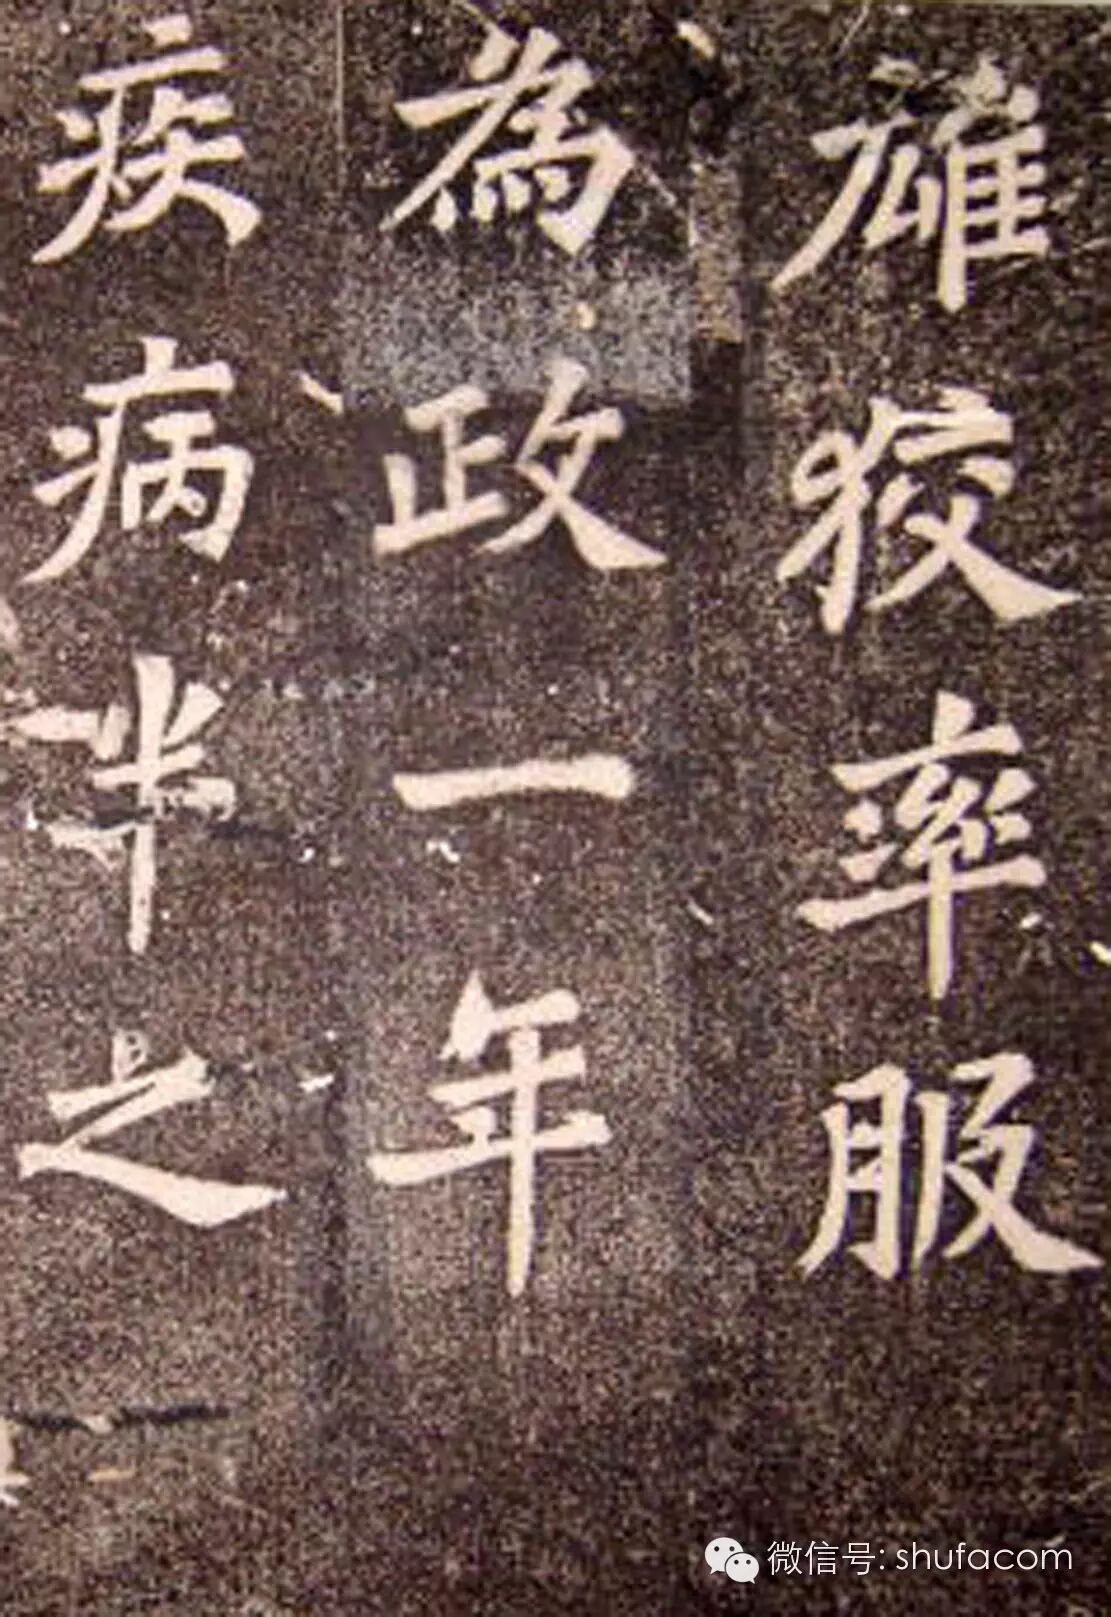 雄狡率服
為政一年
疾病半之
微信号: shufacom